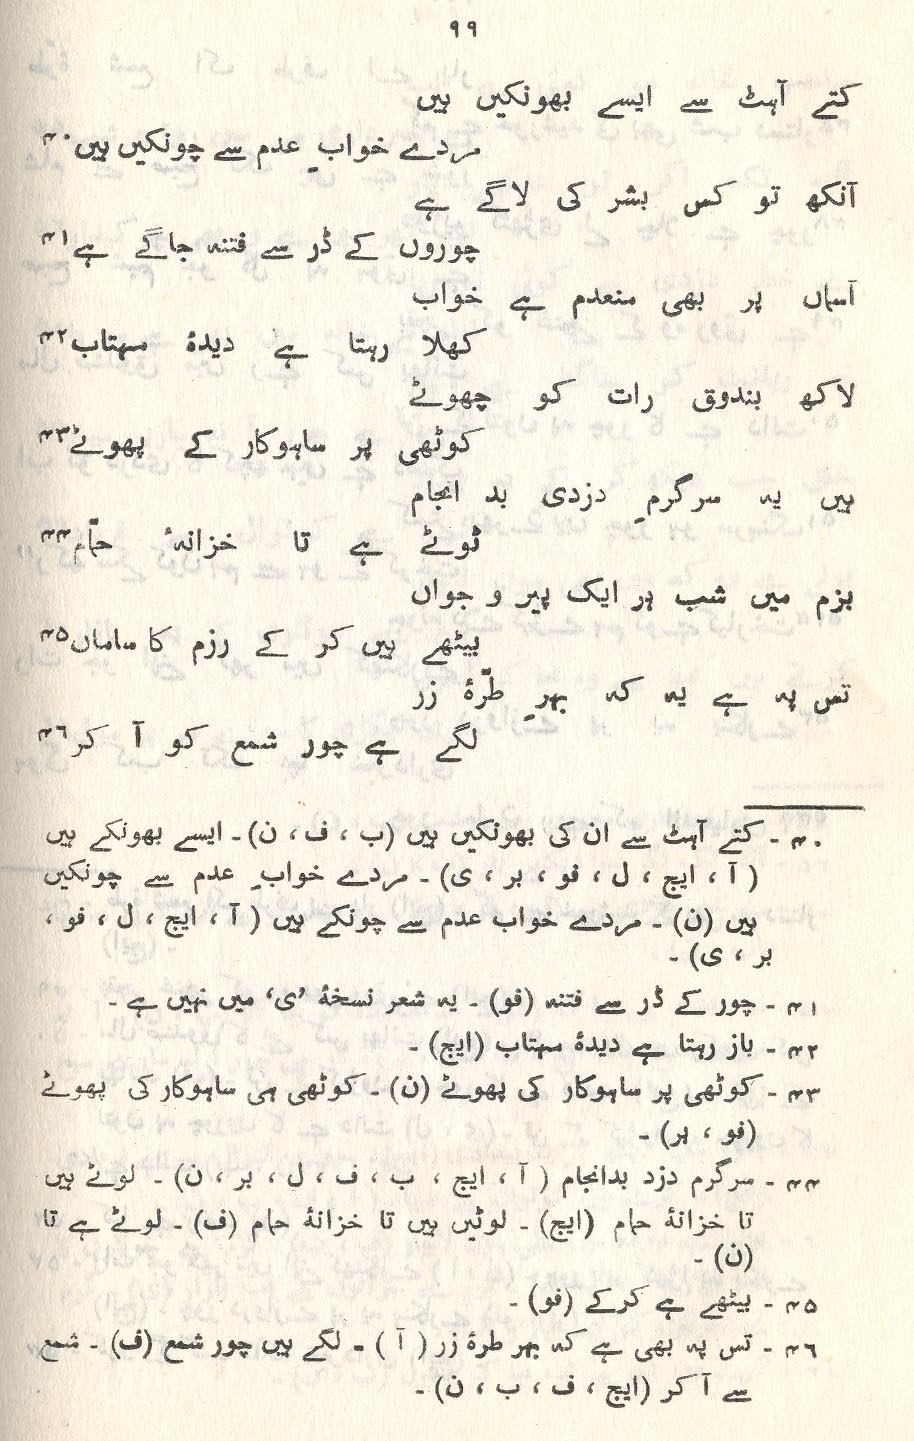 ۹۹
کتے آہٹ سے ایسے بھونکیں ہیں
مردے خوابِ عدم سے چونکیں ہیں۴۰
آنکھ تو کس بشر کی لاگے ہے
چوروں کے ڈر سے فتنہ جاگے ہے۴۱
آسماں پر بھی منعدم ہے خواب
کھلا رہتا ہے دیدۂ مہتاب۴۲
لاکھ بندوق رات کو چھوٹے
کوٹھی پر ساہوکار کے پھوٹے۴۳
ہیں یہ سرگرمِ دزدی بد انجام
ٹوٹے ہے تا خزانۂ حمّام۴۴
بزم میں شب ہر ایک پیر و جواں
بیٹھے ہیں کر کے رزم کا ساماں۴۵
تس پہ ہے یہ کہ بہرِ طرّۂ زر
لگے ہے چور شمع کو آ کر۴۶
۴۰ - کتے آہٹ سے ان کی بھونکیں ہیں (ب ، ف ، ن)۔ ایسے بھونکے ہیں
(آ ، ایچ ، ل ، فو ، بر ، ی)۔ مردے خوابِ عدم سے چونکیں
ہیں (ن)۔ مردے خواب عدم سے چونکے ہیں (آ ، ایچ ، ل ، فو ،
بر ، ی)۔
۴۱ - چور کے ڈر سے فتنہ (فو)۔ یہ شعر نسخۂ ’ی‘ میں نہیں ہے۔
۴۲ - باز رہتا ہے دیدۂ مہتاب (ایچ)۔
۴۳ - کوٹھی پر ساہوکار کی پھوٹے (ن)۔ کوٹھی ہی ساہوکار کی پھوٹے
(فو ، بر)۔
۴۴ - سرگرم دزد بدانجام (آ ، ایچ ، ب ، ف ، ل ، بر ، ن)۔ لوٹے ہیں
تا خزانۂ حمام (ایچ)۔ لوٹیں ہیں تا خزانۂ حمام (ف)۔ لوٹے ہے تا
(ن)۔
۴۵ - بیٹھے ہے کرکے (فو)۔
۴۶ - تس پہ بھی ہے کہ بہر طرۂ زر (آ)۔ لگے ہیں چور شمع (ف)۔ شمع
سے آ کر (ایچ ، ف ، ب ، ن)۔